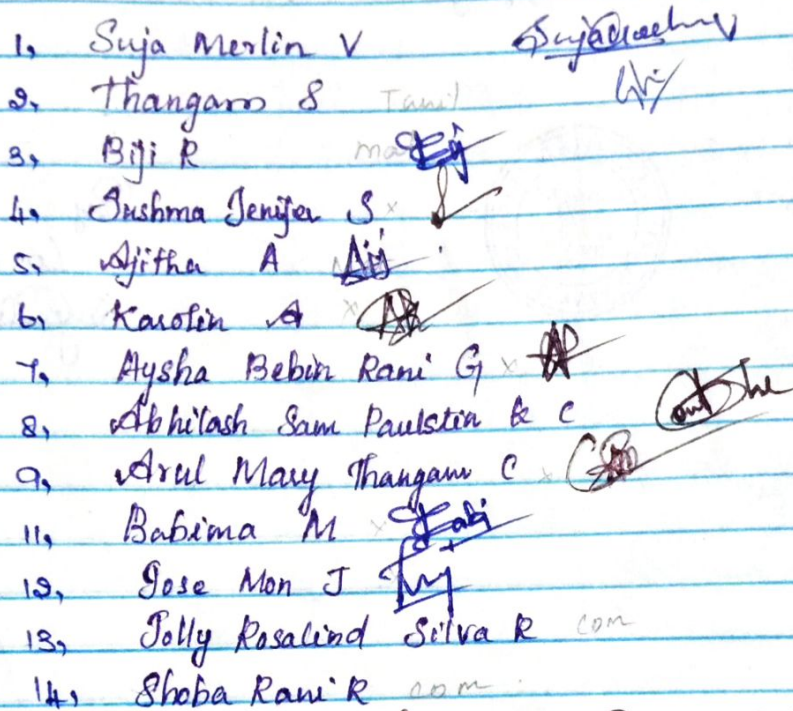 1, Suja Merlin V
2, Thangam S Tamil
3, Biji R
4, Sushma Jenifer S
5, Ajitha A
6, Karolin A
7, Aysha Bebin Rani G
8, Abhilash Sam Paulstin & C
9, Arul Mary Thangam C
11, Babima M
12, Jose Mon J
13, Jolly Rosalind Silva R com
14, Shoba Rani R com